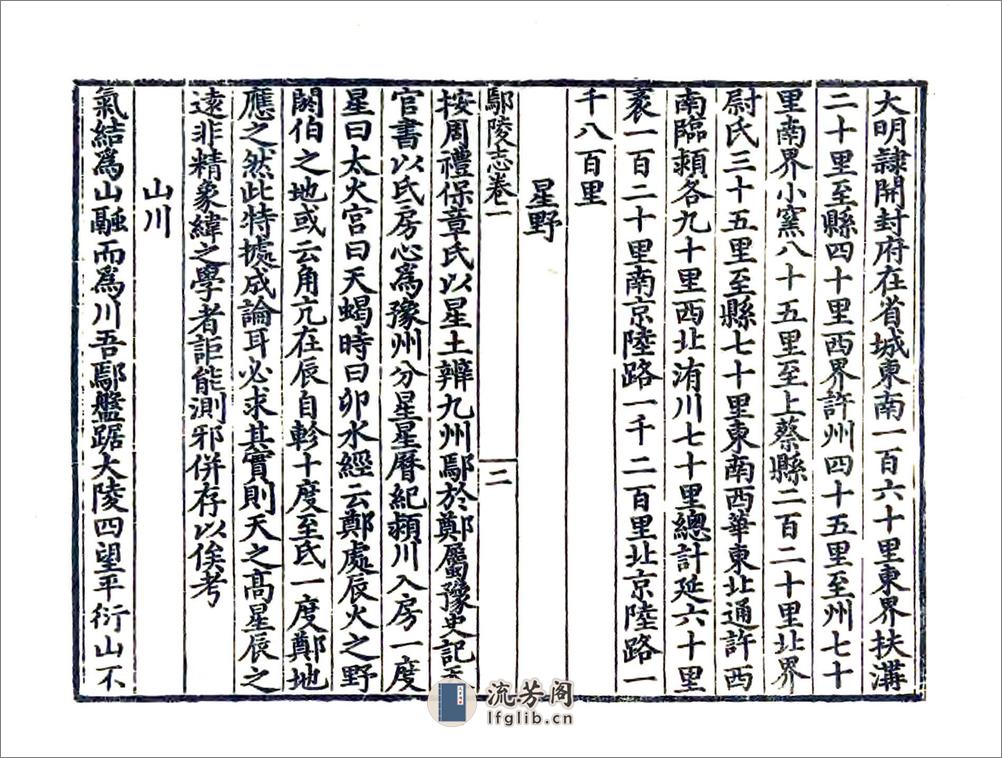 大明隷開封府在省城東南一百六十里東界扶溝
二十里至縣四十里西界許州四十五里至州七十
里南界小窯八十五里至上蔡縣二百二十里北界
尉氏三十五里至縣七十里東南西華東北通許西
南臨潁各九十里西北洧川七十里總計延六十里
袤一百二十里南京陸路一千二百里北京陸路一
千八百里
鄢陵志卷一
三
星野
按周禮保章氏以星土辨九州鄢於鄭屬豫史記天
官書以氐房心為豫州分星星曆紀潁川入房一度
星曰太火宮曰天蝎時曰卯水經云鄭處辰火之野
閼伯之地或云角亢在辰自軫十度至氐一度鄭地
應之然此特據成論耳必求其實則天之髙星辰之
遠非精象緯之學者詎能測邪併存以俟考
山川
氣結為山融而為川吾鄢盤踞大陵四望平衍山不
流芳阁
lfglib.cn